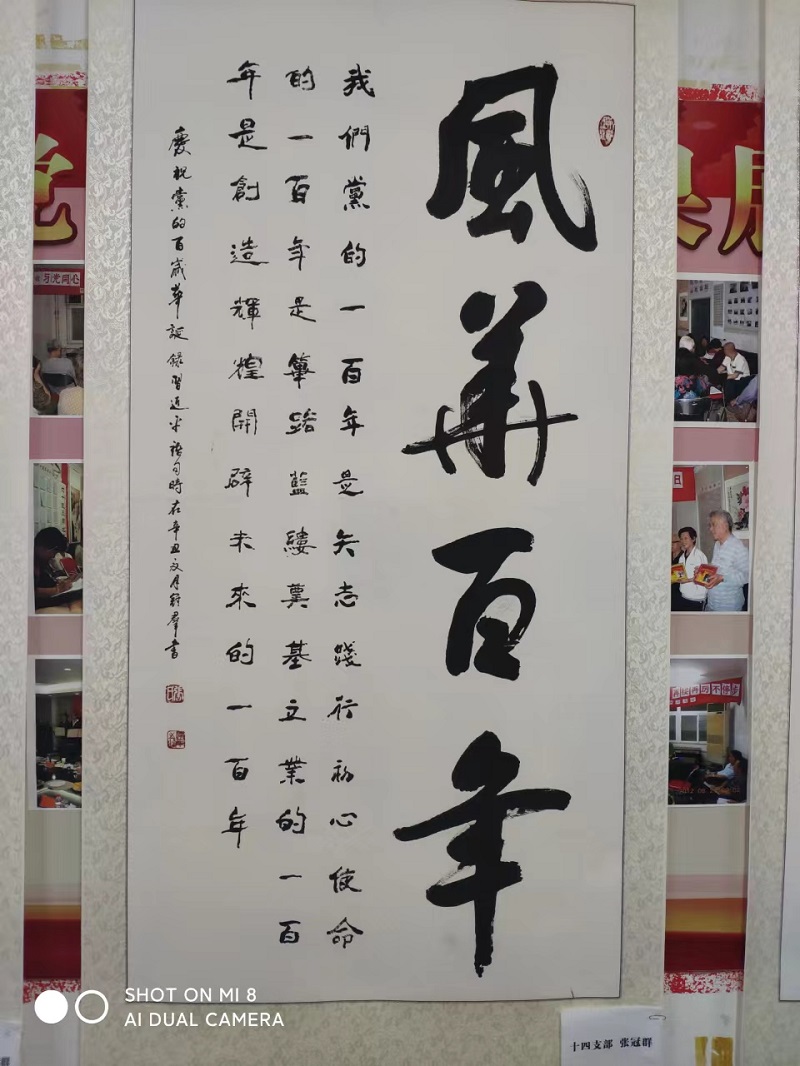 風華百年
我們黨的一百年是矢志踐行初心使命
的一百年是篳路藍縷奠基立業的一百
年是創造輝煌開辟未來的一百年
慶祝黨的百歲華誕錄習近平語句時在辛丑
十四支部 张冠群
SHOT ON MI 8
AI DUAL CAMERA